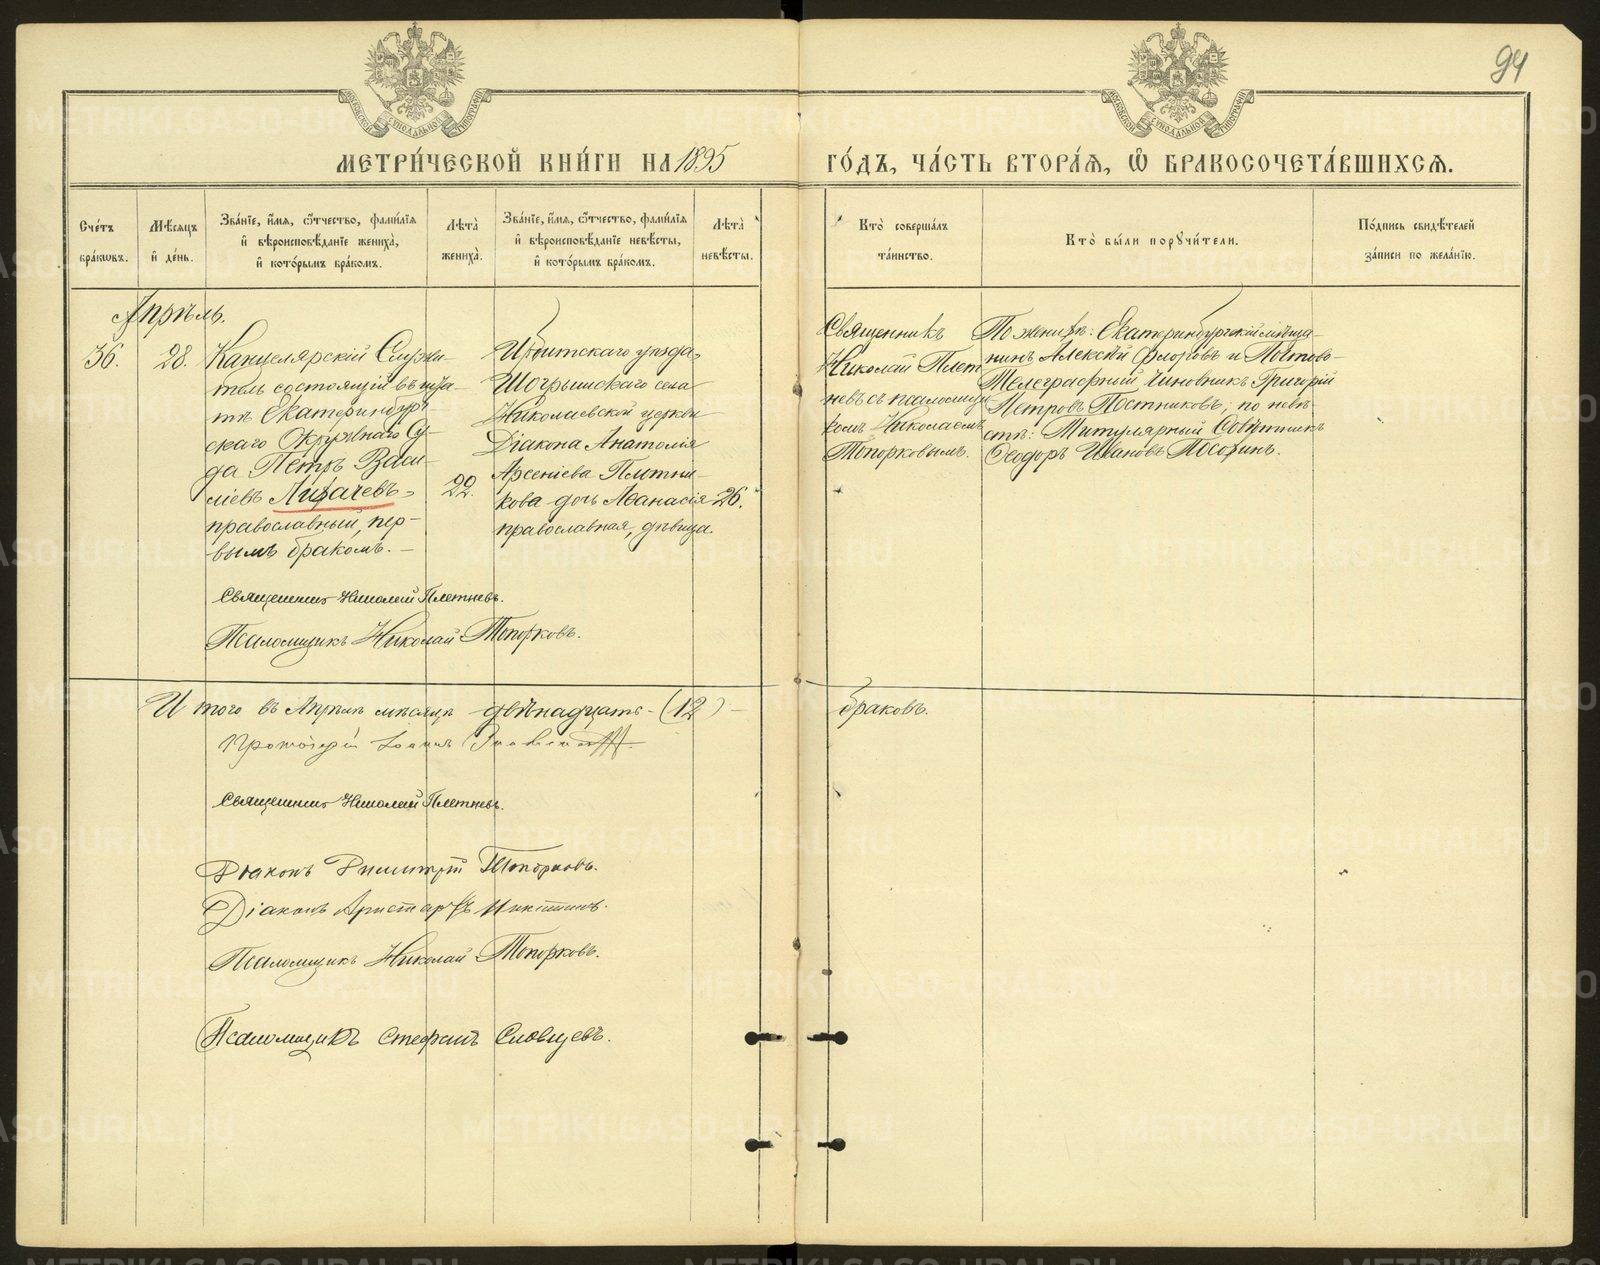 94
МЕТРИ́ЧЕСКОЙ КНИ́ГИ НА 1895 ГО́ДЪ, ЧА́СТЬ ВТОРА́Я, Ѿ БРАКОСОЧЕТА́ВШИХСЯ.
Сче́тъ бра́кѡвъ.
Мѣ́сяцъ и҆ де́нь.
Зва́нїе, и҆́мя, ѻ҆́тчество, фами́лїя и҆ вѣроисповѣ́данїе жениха̀, и҆ кото́рымъ бра́комъ.
Лѣ́та̀ жениха̀.
Зва́нїе, и҆́мя, ѻ҆́тчество, фами́лїя и҆ вѣроисповѣ́данїе невѣ́сты, и҆ кото́рымъ бра́комъ.
Лѣ́та̀ невѣ́сты.
Кто̀ соверша́лъ та́инство.
Кто̀ бы́ли порꙋчи́тели.
По́дпись свидѣ́телей за́писи по жела́нїю.
Апрѣль.
36.
28.
Канцелярскій Служи-
тель состоящій въ шта-
тѣ Екатеринбург
скаго Окружнаго Су-
да Петръ Васи-
ліевъ Лихачевъ,
православный, пер-
вымъ бракомъ. —
22.
Ирбитскаго уѣзда,
Шогрышскаго села
Николаевской церкви
Діакона Анатолія
Арсеніева Плотни-
кова дочь Аѳанасія
православная, дѣвица.
26.
Священникъ
Николай Плет
невъ съ псаломщи
комъ Николаемъ
Топорковымъ.
По женихѣ: Екатеринбургскій мѣща-
нинъ Алексѣй Флоровъ и Почтово-
Телеграфный чиновникъ Григорій
Петровъ Постниковъ; по невѣ-
стѣ: Титулярный Совѣтникъ
Ѳеодоръ Ивановъ Посохинъ.
Священникъ Николай Плетневъ.
Псаломщикъ Николай Топорковъ.
Итого въ Апрѣлѣ мѣсяцѣ двѣнадцать — (12) — браковъ.
Протоіерей Іоаннъ
Священникъ Николай Плетневъ.
Діаконъ Димитрій Топорковъ.
Діаконъ Аристархъ Никитинъ.
Псаломщикъ Николай Топорковъ.
Псаломщикъ Стефанъ Словцевъ.
METRIKI.GASO-URAL.RU